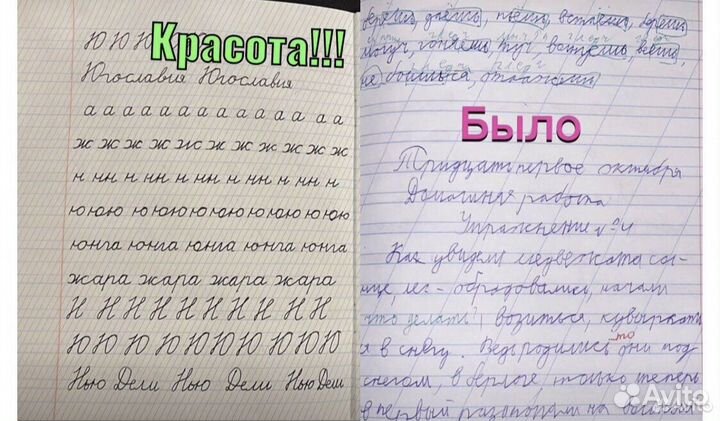 Ю Ю Ю
Красота!!!
Югославия Югославия
а а а а а а а а а а а а а а
ж ж ж ж ж ж ж ж ж ж ж ж
н нн н нн нн н нн н нн н
ююю ююю ююю ююю ююю
юнга юнга юнга юнга юнга
жара жара жара жара жара
Н Н Н Н Н Н Н Н Н Н
Ю Ю Ю Ю Ю Ю Ю Ю Ю Ю
Нью Дели Нью Дели Нью Дели
поёшь
могуч
Было
Тридцать первое октября
Домашняя работа
Упражнение №4
Как увидели медвежата сол-
нце, лес - обрадовались, начали
что делать? возиться, кувыркать
я в снегу. Ведь родились -то они под
снегом, в берлоге, только теперь
в первый раз попали на
Avito